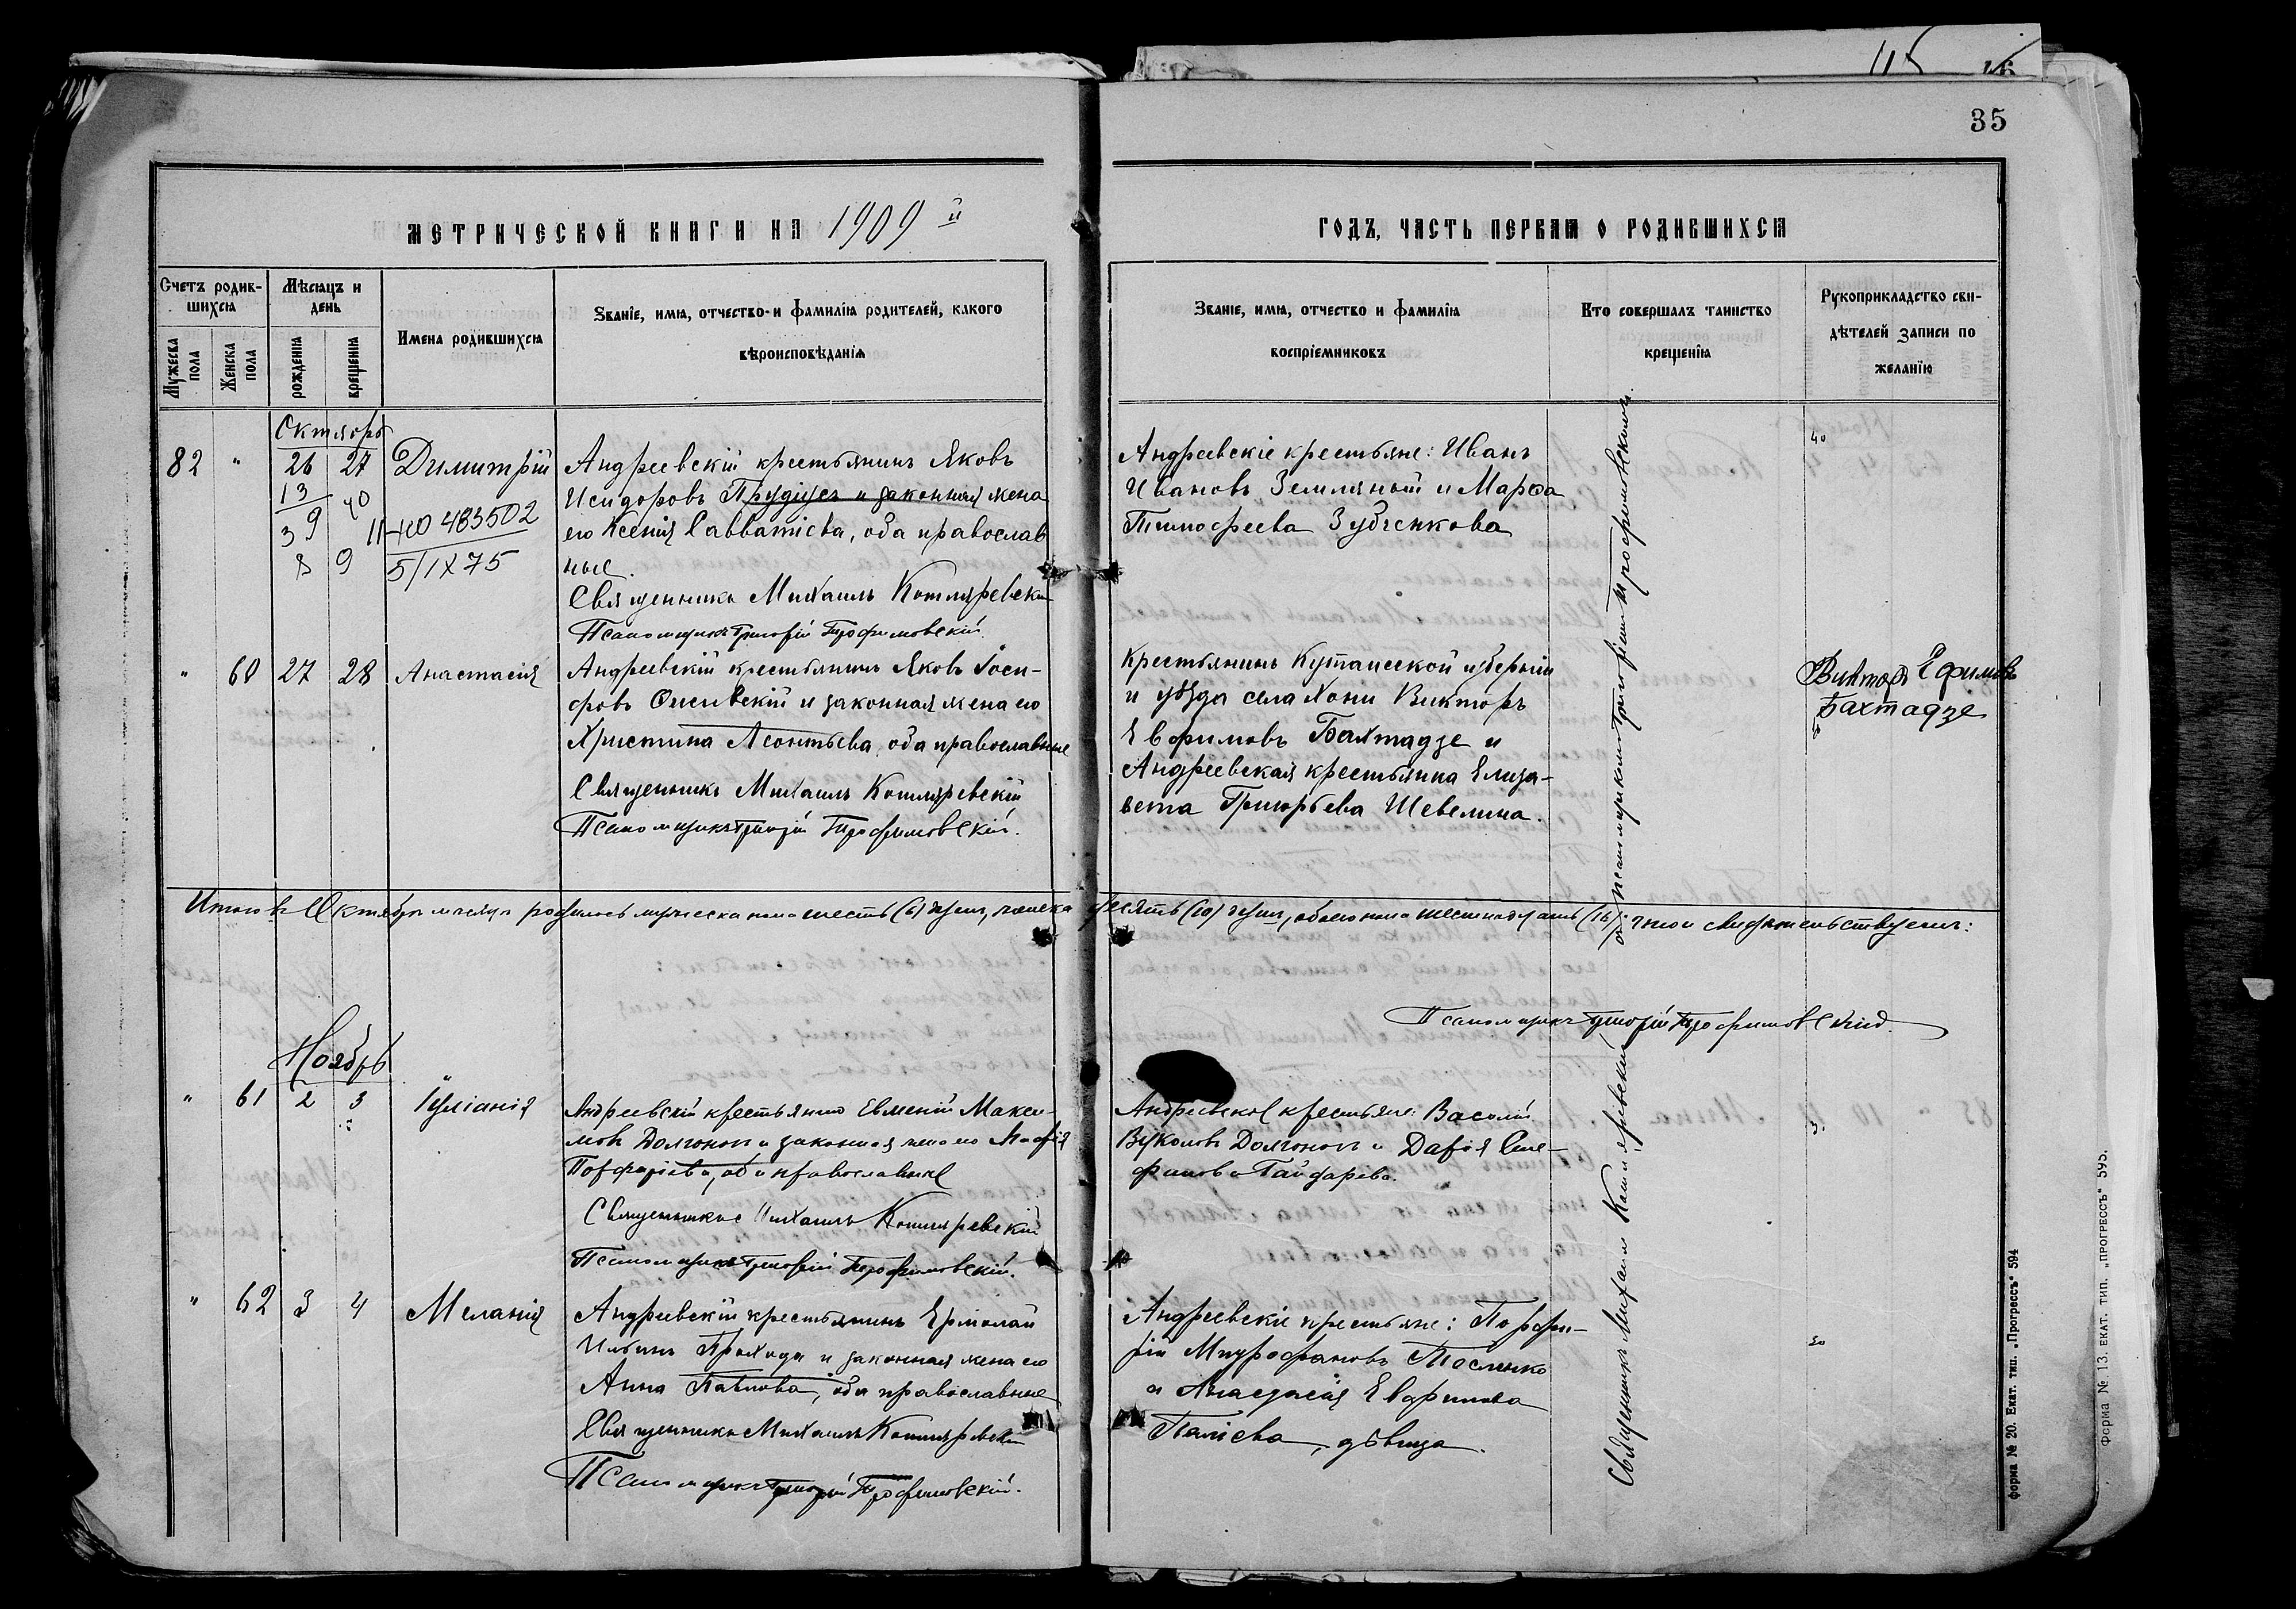 115 16
35
МЕТРИЧЕСКОЙ КНИГИ НА 1909й
ГОДЪ, ЧАСТЬ ПЕРВАЯ О РОДИВШИХСЯ
Счетъ родив-
шихся
Мужеска пола
Женска пола
Мѣсяцъ и
день
рожденія
крещенія
Имена родившихся
Званіе, имя, отчество и фамилія родителей, какого
вѣроисповѣданія
Званіе, имя, отчество и фамилія
воспріемниковъ
Кто совершалъ таинство
крещенія
Рукоприкладство сви-
дѣтелей записи по
желанію
Октябрь
82 " 26 27 Димитрій
13 40
39 11 НО 483502
8 9 5/IX 75
Андреевскій крестьянинъ Яковъ
Исидоровъ и законная жена
его Ксенія Савватіева, оба православ
ные.
Священникъ Михаилъ Котляревскій
Псаломщикъ Григорій Трофимовскій.
Андреевскіе крестьяне: Иванъ
Ивановъ Земляный и Марѳа
Тимоѳеева Зубченкова
" 60 27 28 Анастасія
Андреевскій крестьянинъ Яковъ Іоси-
фовъ и законная жена его
Христина Леонтьева, оба православные
Священникъ Михаилъ Котляревскій
Псаломщикъ Григорій Трофимовскій.
Крестьянинъ Кутаисской губерніи
и уѣзда села Хони Викторъ
Евфимовъ Бахтадзе и
Андреевская крестьянка Елиза-
вета Григорьева Шевелина.
Викторъ Ефимовъ
Бахтадзе
Итого въ Октябрѣ мѣсяцѣ родилось мужеска пола шесть (6) душъ, женска десять (10) душъ, обоего пола шестнадцать (16) что и свидѣтельствуемъ:
Псаломщикъ Григорій Трофимовскій.
Священникъ Михаилъ Котляревскій
съ псаломщикомъ Григоріемъ Трофимовскимъ.
Ноябрь
" 61 2 3 Іуліанія
Андреевскій крестьянинъ Евменій Макси-
мовъ Долгоногъ и законная жена его
Порфиріева, оба православные
Священникъ Михаилъ Котляревскій
Псаломщикъ Григорій Трофимовскій.
Андреевскіе крестьяне: Василій
Вуколовъ Долгоногъ и Дарія Сте-
фанова Гайдарева.
" 62 3 4 Меланія
Андреевскій крестьянинъ Ермолай
Ильинъ Прохода и законная жена его
Анна Павлова, оба православные
Священникъ Михаилъ Котляревскій
Псаломщикъ Григорій Трофимовскій.
Андреевскіе крестьяне: Порфи-
рій Митрофановъ
и Анастасія Евфимова
Паліева, дѣвица.
форма № 20. Екат. тип. „Прогрессъ“ 594
Форма № 13. ЕКАТ. ТИП. „ПРОГРЕССЪ“ 595.